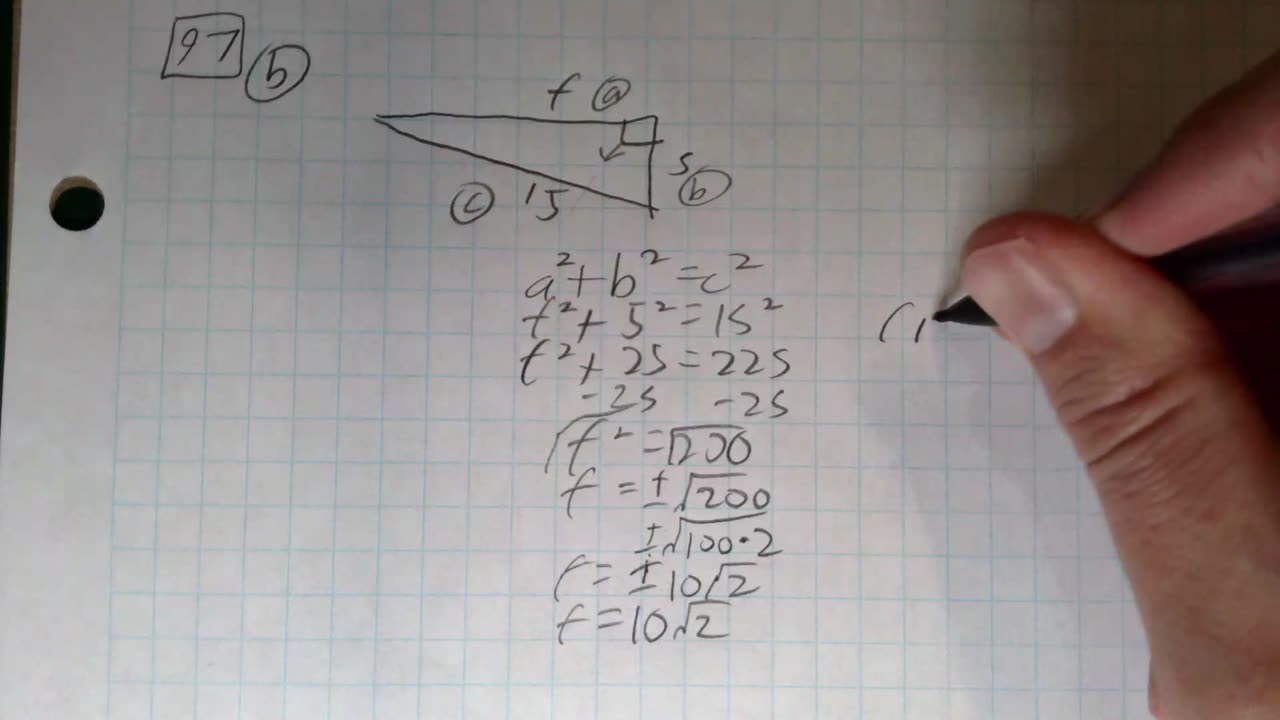 97 b
f a
5 b
c 15
a² + b² = c²
f² + 5² = 15²
f² + 25 = 225
-25 -25
√f² = √200
f = ± √200
± √100·2
f = ± 10√2
f = 10√2